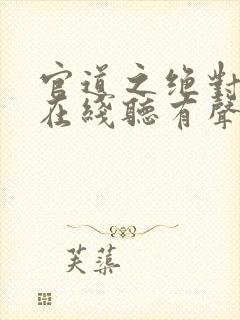 官道之绝對
在綫聽有聲
芙蕖